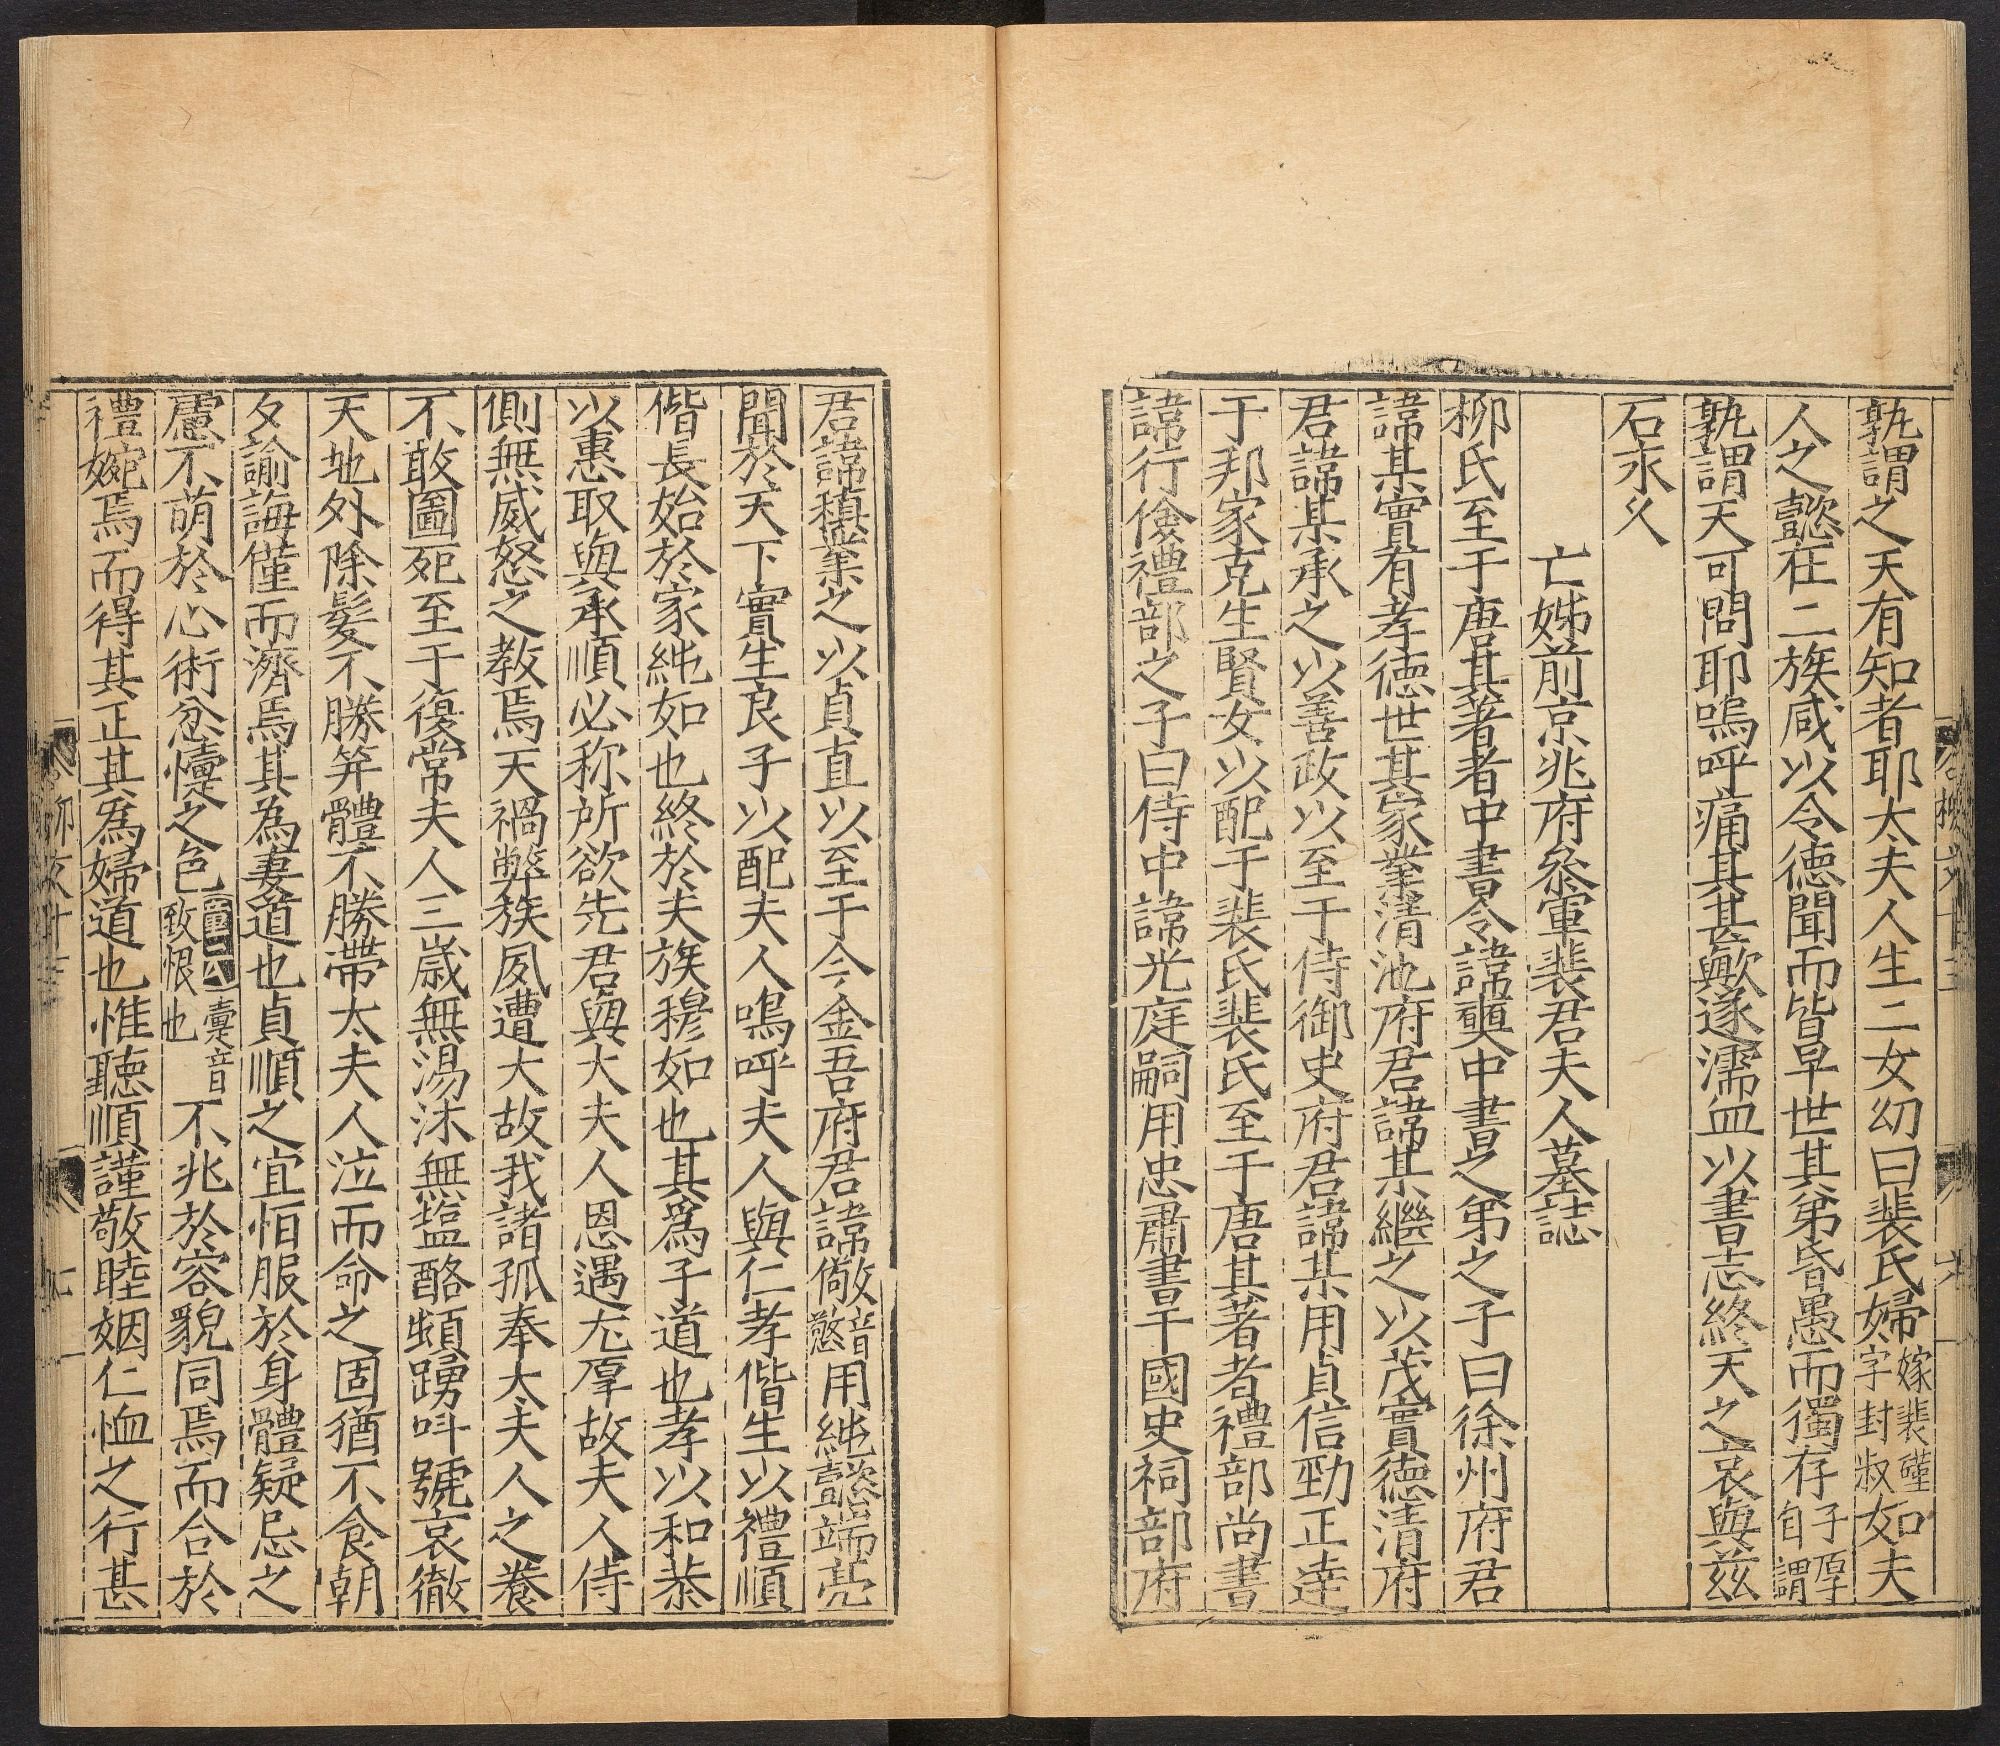 孰謂之天有知者耶太夫人生二女幼曰裴氏婦嫁裴瑾字封叔如夫
人之懿在二族咸以令德聞而皆早世其弟昏愚而獨存子厚自謂
孰謂天可問耶嗚呼痛其甚歟遂濡血以書志終天之哀與兹
石永乆
亡姊前京兆府叅軍裴君夫人墓誌
柳氏至于唐其著者中書令諱奭中書之弟之子曰徐州府君
諱某實有孝德世其家業清池府君諱某繼之以茂實德清府
君諱某承之以善政以至于侍御史府君諱某用貞信勁正達
于邦家克生賢女以配于裴氏裴氏至于唐其著者禮部尚書
諱行儉禮部之子曰侍中諱光庭嗣用忠肅書于國史祠部府
君諱稹業之以貞直以至于今金吾府君諱儆音憼用純懿端亮
聞於天下實生良子以配夫人嗚呼夫人與仁孝偕生以禮順
偕長始於家純如也終於夫族穆如也其爲子道也孝以和恭
以惠取與承順必称所欲先君與大夫人恩遇尢厚故夫人侍
側無威怒之教焉天禍弊族夙遭大故我諸孤奉太夫人之養
不敢圖死至于復常夫人三歲無湯沐無塩酪頓踴呌號哀徹
天地外除髮不勝笄體不勝帶太夫人泣而命之固猶不食朝
夕諭誨僅而濟焉其為妻道也貞順之宜怕服於身體疑忌之
慮不萌於心術忿懥之色童云懥音致恨也不兆於容貌同焉而合於
禮婉焉而得其正其爲婦道也惟聽順謹敬睦姻仁恤之行甚
柳文十三
七
六